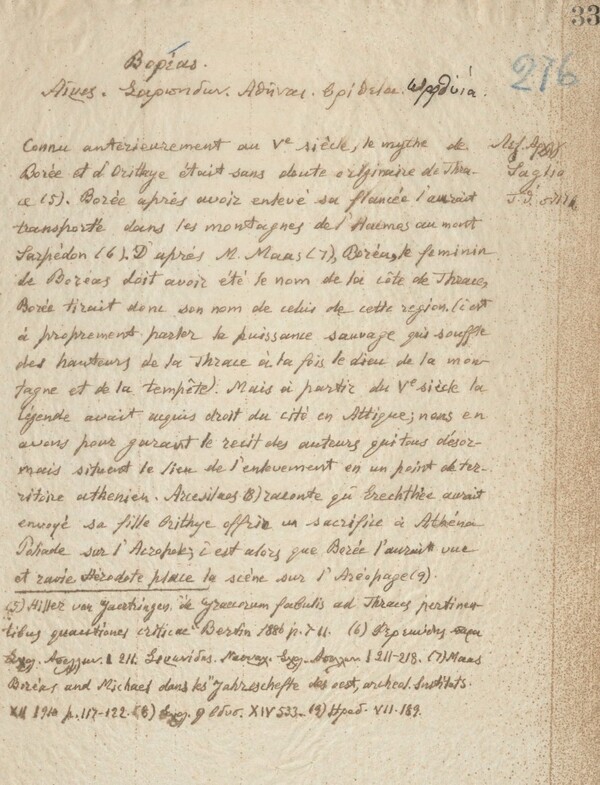 33
276
Βορέας.
Αἷμος. Σαρπηδων. Αθῆναι. Ωρείθυια
Connu antérieurement au Ve siècle, le mythe de
Borée et d'Orithye était sans doute originaire de Thra-
ce (5). Borée après avoir enlevé sa fiancée l'aurait
transporté dans les montagnes de l'Haemos au mont
Sarpédon (6). D'après M. Maas (7), Boréas, le feminin
de Boréas doit avoir été le nom de la côte de Thrace,
Borée tirait donc son nom de celui de cette region. (c'est
à proprement parler la puissance sauvage qui souffle
des hauteurs de la Thrace à la fois le dieu de la mon-
tagne et de la tempête). Mais à partir du Ve siècle la
légende avait acquis droit du cité en Attique; nous en
avons pour garant le recit des auteurs qui tous désor-
mais situent le lieu de l'enlevement en un point de ter-
ritoire athenien. Arcesilaos (8) raconte qu'Erechthée aurait
envoyé sa fille Orithye offrir un sacrifice à Athéna
Poliade sur l'Acropole; c'est alors que Borée l'aurait vue
et ravie Hérodote place la scène sur l'Aréopage (9).
(5) Hiller von Gaertringen, de Graecorum fabulis ad Thraces pertinen-
tibus quaestiones criticae Berlin 1886 p. 7-11. (6)
I 211. Σιμωνίδος. I 211-218. (7) Maas
Boréas und Michael dans les "Jahreshefte des oest. archeol. Instituts.
XII 1910 p. 117-122. (8) Οδυσ. XIV 533. (9) Ηροδ. VII. 189.
Saglio